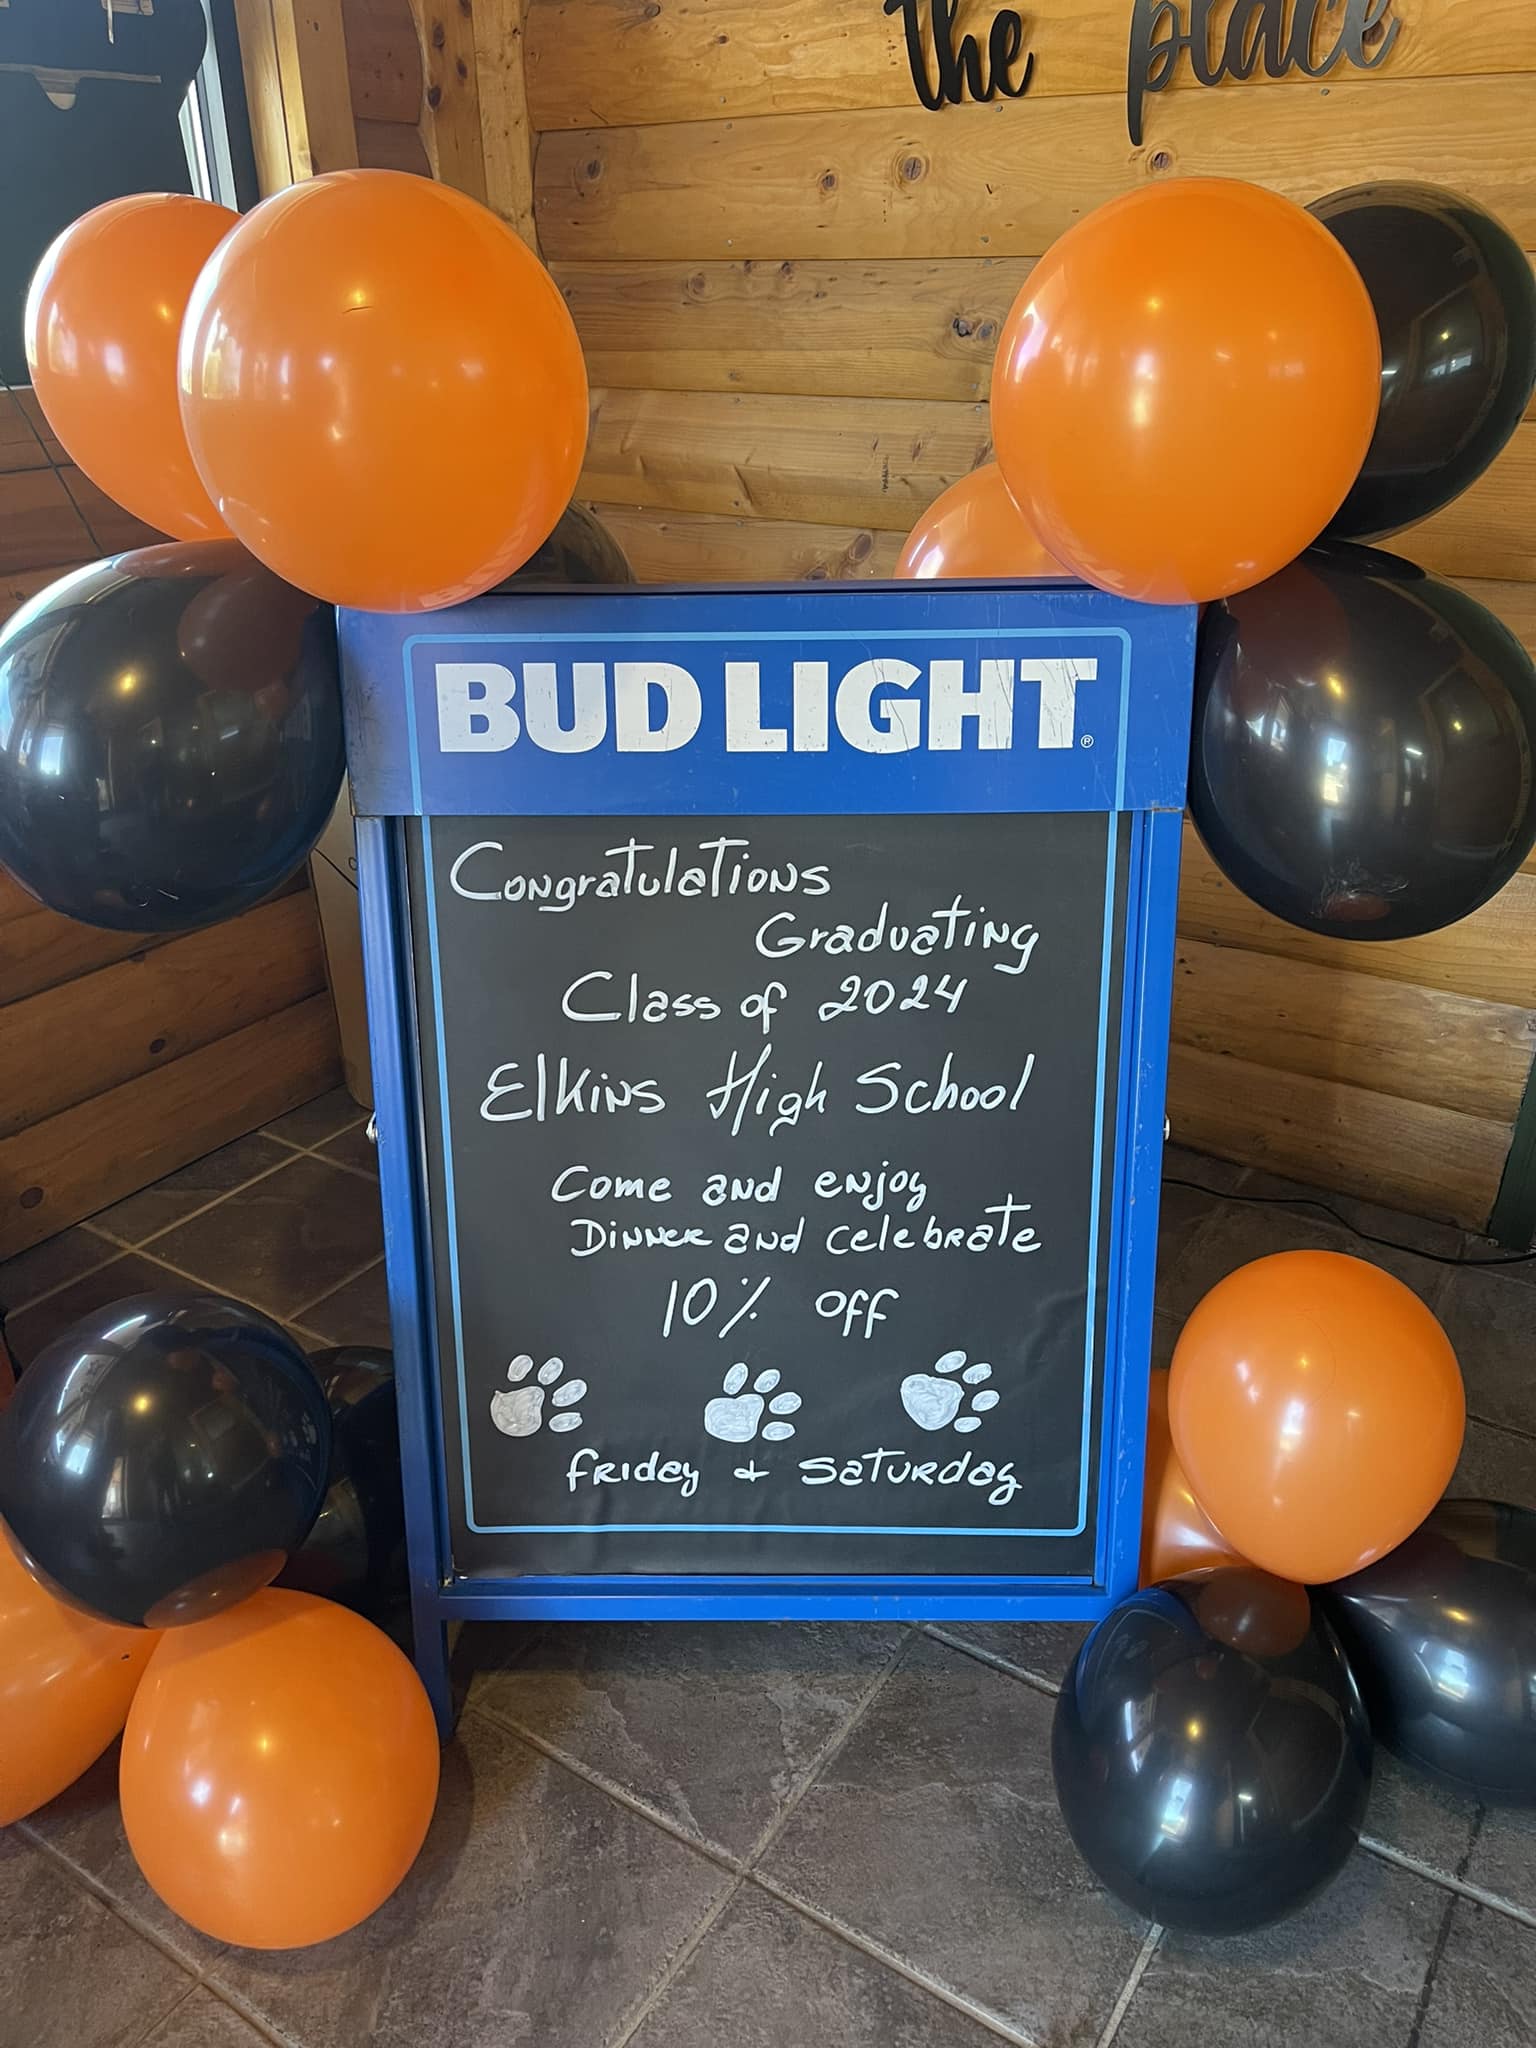 the place
BUD LIGHT®
Congratulations
Graduating
Class of 2024
Elkins High School
Come and enjoy
Dinner and celebrate
10% off
friday + saturday